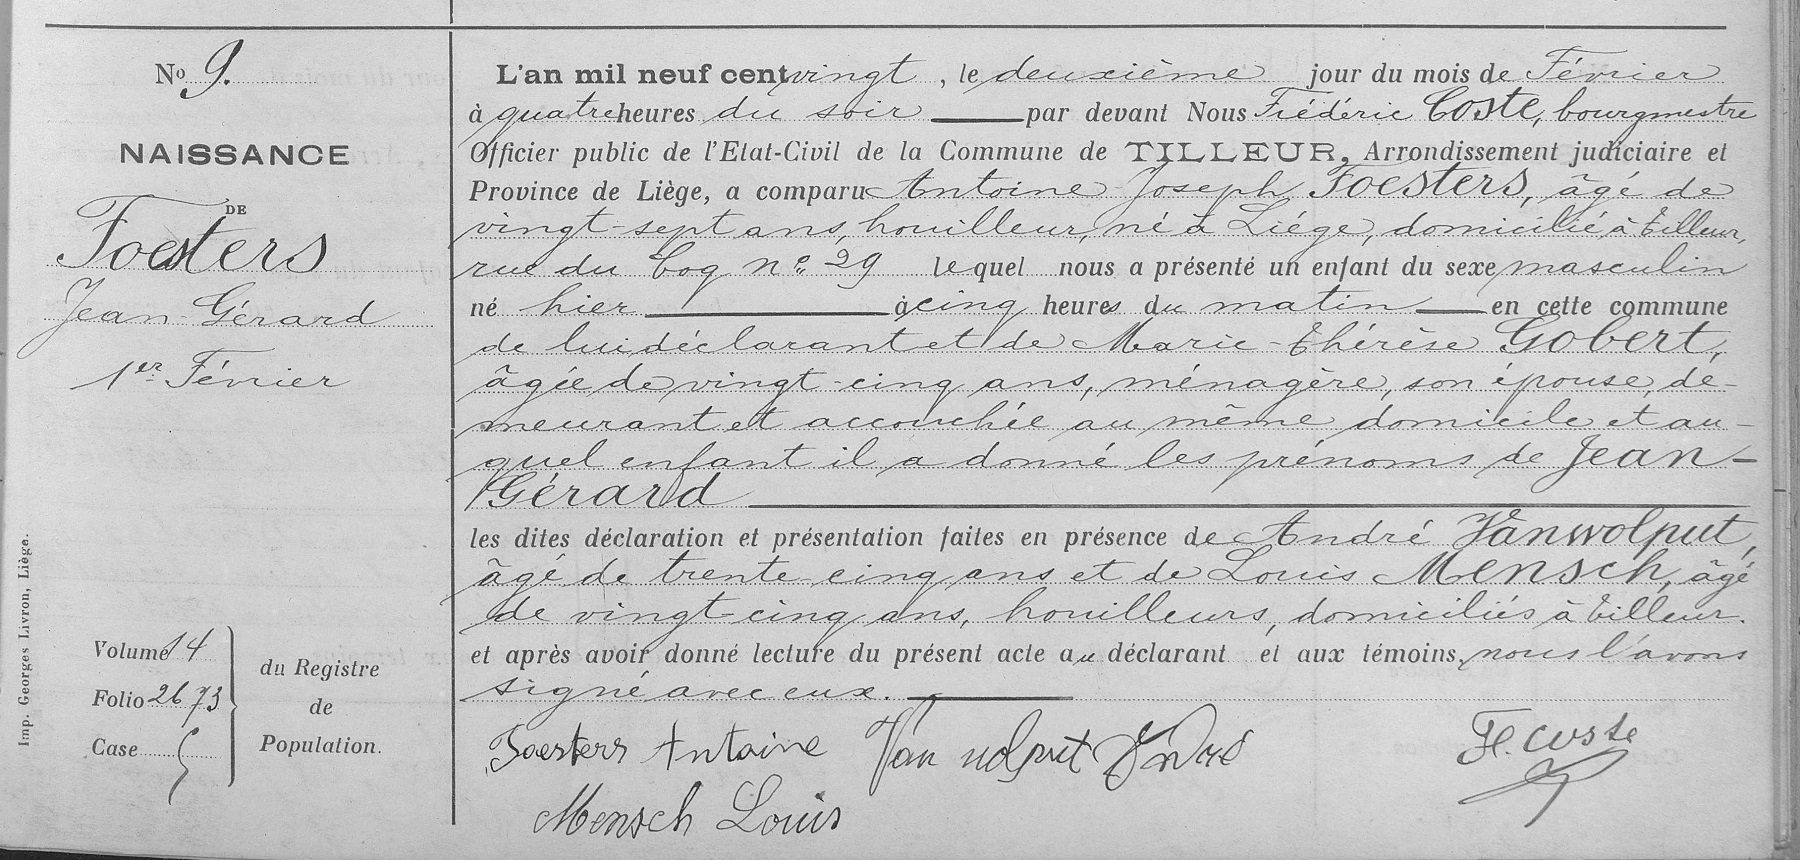 N° 9.
NAISSANCE
DE
Foesters
Jean-Gérard
1er Février
Volume 14
Folio 2673
Case 5
du Registre
de
Population.
Imp. Georges Livron, Liège.
L'an mil neuf cent vingt, le deuxième jour du mois de Février
à quatre heures du soir par devant Nous Frédéric Coste, bourgmestre
Officier public de l'Etat-Civil de la Commune de TILLEUR, Arrondissement judiciaire et
Province de Liège, a comparu Antoine Joseph Foesters, âgé de
vingt-sept ans, houilleur, né à Liége, domicilié à Tilleur,
rue du Coq n° 29 lequel nous a présenté un enfant du sexe masculin
né hier à cinq heures du matin en cette commune
de lui déclarant et de Marie-Thérèse Gobert,
âgée de vingt-cinq ans, ménagère, son épouse, de-
meurant et accouchée au même domicile et au-
quel enfant il a donné les prénoms de Jean-
Gérard
les dites déclaration et présentation faites en présence de André Vanwolput,
âgé de trente-cinq ans et de Louis Mensch, âgé
de vingt-cinq ans, houilleurs, domiciliés à Tilleur.
et après avoir donné lecture du présent acte au déclarant et aux témoins, nous l'avons
signé avec eux.
Foesters Antoine Van wolput André Fr. Coste
Mensch Louis